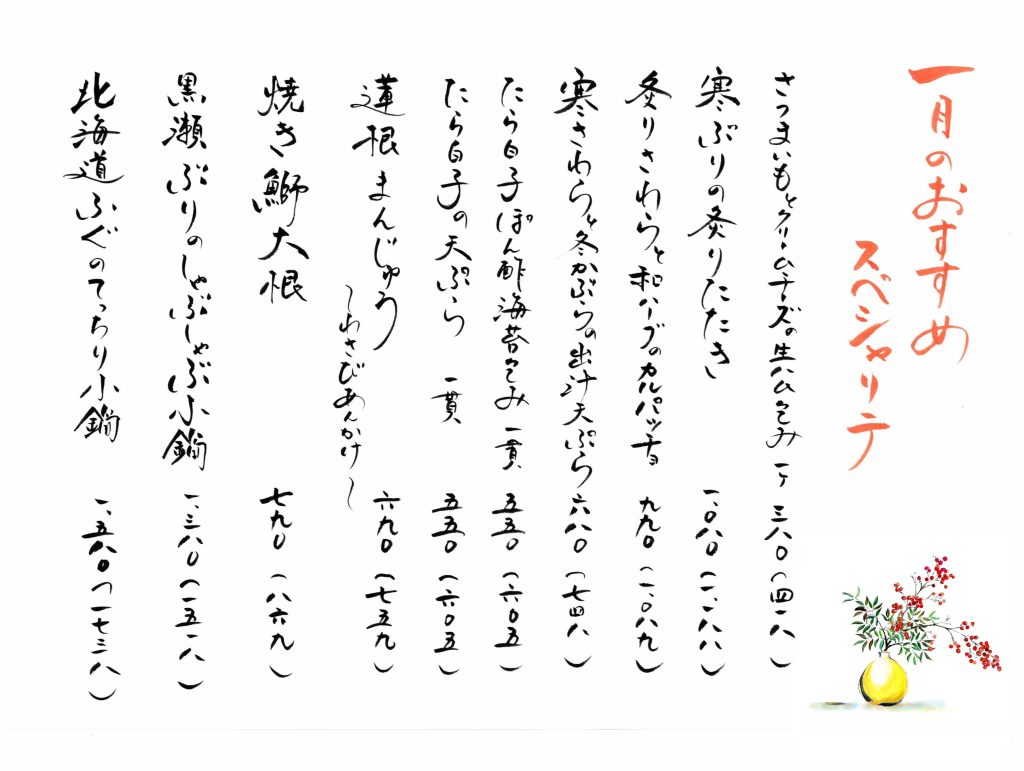 一月のおすすめ
スペシャリテ
さつまいもとクリームチーズの生ハム包み 一ケ 三八〇（四一八）
寒ぶりの炙りたたき 一、〇八〇（一、一八八）
炙りさわらと和ハーブのカルパッチョ 九九〇（一、〇八九）
寒さわらと冬かぶらの出汁天ぷら 六八〇（七四八）
たら白子ぽん酢海苔包み 一貫 五五〇（六〇五）
たら白子の天ぷら 一貫 五五〇（六〇五）
蓮根まんじゅう 六九〇（七五九）
〜わさびあんかけ〜
焼き鰤大根 七九〇（八六九）
黒瀬ぶりのしゃぶしゃぶ小鍋 一、三八〇（一五一八）
北海道ふぐのてっちり小鍋 一、五八〇（一七三八）